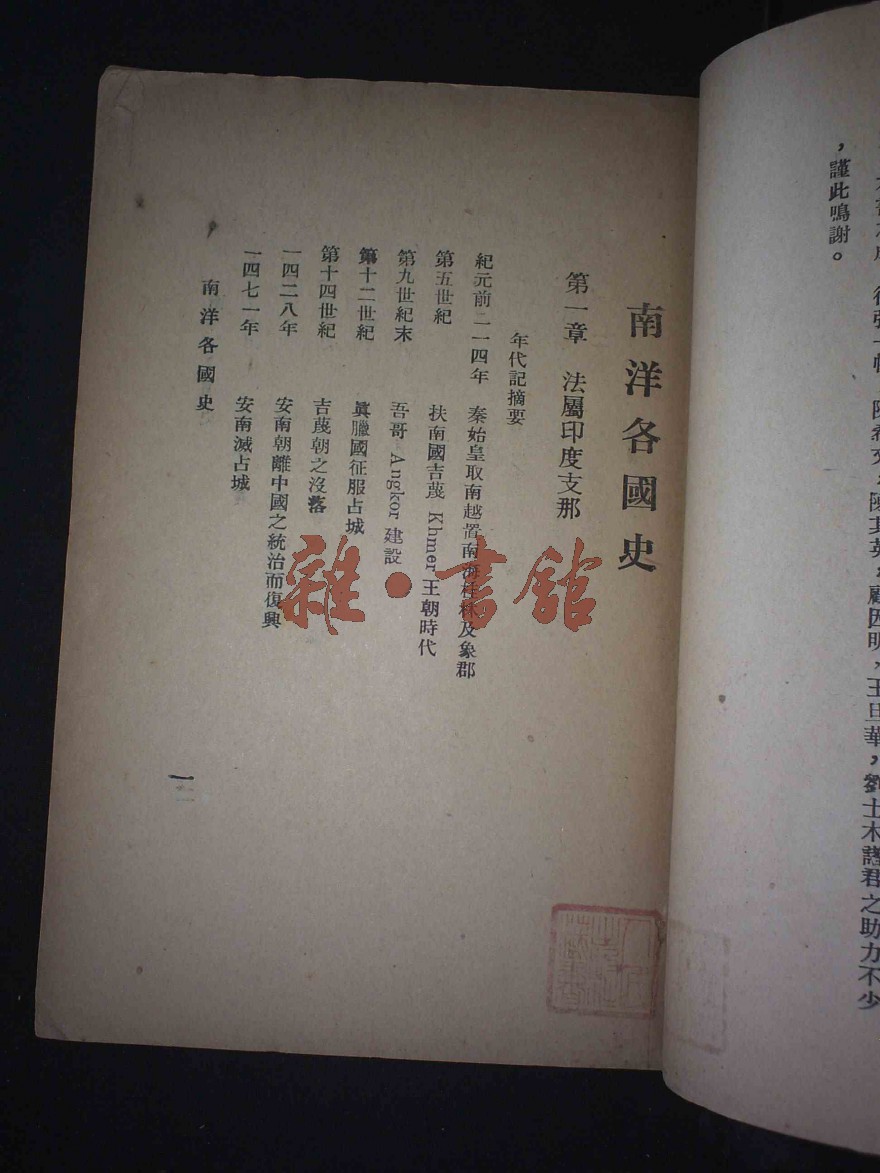 ，謹此鳴謝。
南洋各國史
第一章　法屬印度支那
年代記摘要
紀元前二一四年　秦始皇取南越置南海桂林及象郡
第五世紀　扶南國吉蔑 Khmer 王朝時代
第九世紀末　吾哥 Angkor 建設
第十二世紀　眞臘國征服占城
第十四世紀　吉蔑朝之沒落
一四二八年　安南朝離中國之統治而復興
一四七一年　安南滅占城
南洋各國史
一
雜·書館